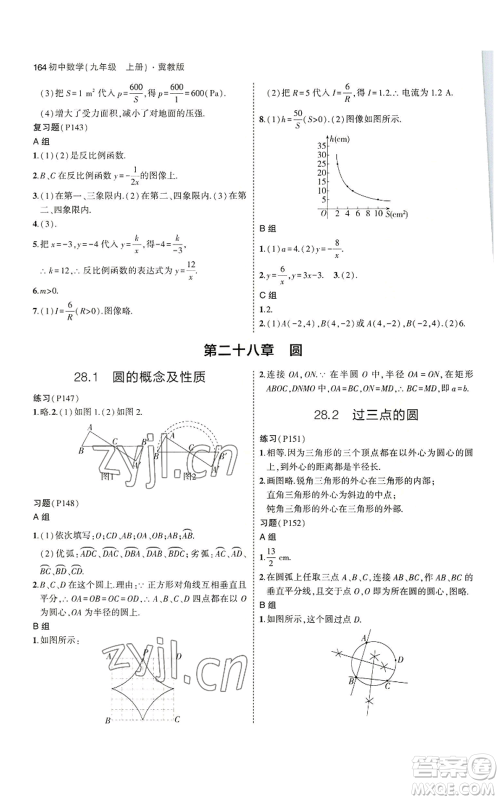 164 初中数学(九年级 上册)·冀教版
(3)把 S=1 m² 代入 p=600/S,得 p=600/1=600(Pa).
(4)增大了受力面积,减小对地面的压强.
复习题(P143)
A 组
1.(1)(2)是反比例函数.
2.B、C 在反比例函数 y=-1/2x 的图像上.
3.(1)在第一、三象限内.(2)在第二、四象限内.(3)在第二、四象限内.
4.(3).
5.把 x=-3,y=-4 代入 y=k/x,得-4=k/-3.
∴k=12,∴反比例函数的表达式为 y=12/x.
6.m>0.
7.(1)I=6/R(R>0).图像略.
(2)把 R=5 代入 I=6/R,得 I=1.2,∴电流为 1.2 A.
8.(1)h=6/S(S>0).(2)图像如图所示.
h(cm)
30
25
20
15
10
5
O 2 4 6 8 10 S(cm²)
B 组
1.(1)a=4.(2)y=-8/x.
2.y=6/x,y=x-1. 3.(2).
C 组
1.2.
2.(1)A(-2,4),B(4,-2).(2)6.
第二十八章 圆
28.1 圆的概念及性质
练习(P147)
1.略. 2.(1)如图1.(2)如图2.
A
B
C
图1
图2
习题(P148)
A 组
1.(1)依次填写:O;CD,AB;OA,OC,OD,OB.
2.B、C、D 在这个圆上.因为正方形对角线互相垂直且平分,∴OA=OB=OC=OD,∴B、C、D 都在以 O 为圆心,OA 为半径的圆上.
B 组
1.如图所示:
A
D
B
C
2.连接 OA,OD,OM.在半圆 O 中,OA=OD=OM,在矩形 ABOC,DNOE,MHOF中,OA=BC,OD=EN,OM=HF,∴BC=EN=HF,即 a=b=c.
28.2 过三点的圆
练习(P151)
1.相等.因为三角形的三个顶点都在以外心为圆心的圆上,外心到三个顶点的距离都为半径长.
2.画图略.锐角三角形的外心在三角形的内部
直角三角形的外心在斜边的中点
钝角三角形的外心在三角形的外部.
习题(P152)
A 组
1.13/2 cm.
2.在圆弧上任取三点 A,B,C,连接 AB,BC,作 AB,BC 的垂直平分线,交点 O 就是圆心.
B 组
1.如图所示,这个圆过点 D.
A
D
B
C
zyjl.cn
答案圈